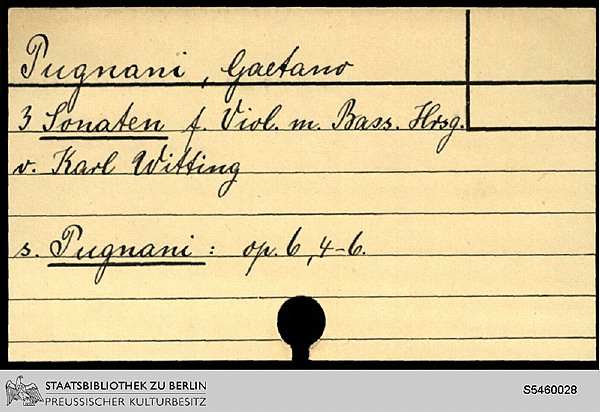 Pugnani, Gaetano
3 Sonaten f. Viol. m. Bass. Hrsg.
v. Karl Witting
s. Pugnani: op. 6, 4-6.
STAATSBIBLIOTHEK ZU BERLIN
PREUSSISCHER KULTURBESITZ
S5460028